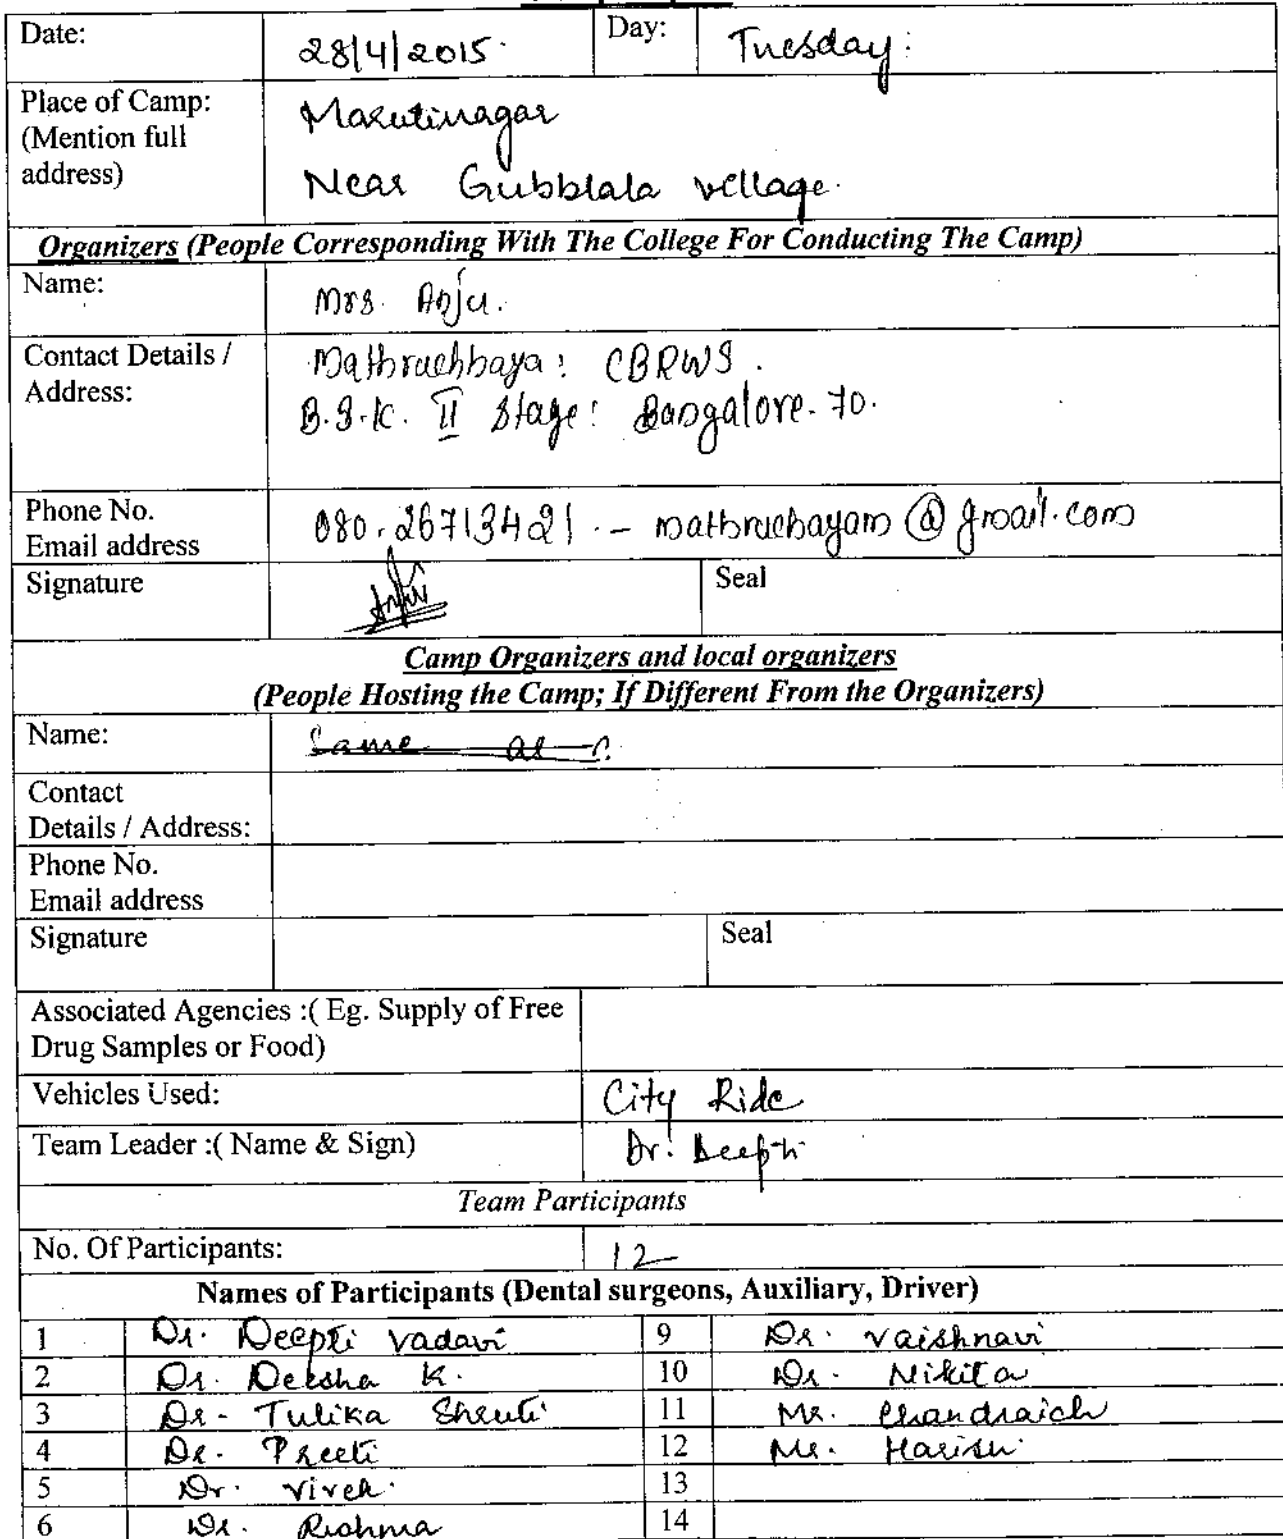 Date: 28/4/2015. Day: Tuesday:
Place of Camp: Marutinagar
(Mention full
address) Near Gubblala village.
Organizers (People Corresponding With The College For Conducting The Camp)
Name: Mrs. Anju.
Contact Details / Mathruchhaya: CBRWS.
Address: B.S.K. II Stage: Bangalore-70.
Phone No. 080.26713421. - mathruchayam@gmail.com
Email address
Signature Seal
Camp Organizers and local organizers
(People Hosting the Camp; If Different From the Organizers)
Name: Same as
Contact
Details / Address:
Phone No.
Email address
Signature Seal
Associated Agencies :( Eg. Supply of Free
Drug Samples or Food)
Vehicles Used: City Ride
Team Leader :( Name & Sign) Dr. Deepti
Team Participants
No. Of Participants: 12
Names of Participants (Dental surgeons, Auxiliary, Driver)
1 Dr. Deepti Vadavi 9 Dr. Vaishnavi
2 Dr. Deksha K. 10 Dr. Nikita
3 Dr. Tulika Shruti 11 Mr. Chandraich
4 Dr. Preeti 12 Mr. Harish
5 Dr. Vivek. 13
6 Dr. Rishma 14